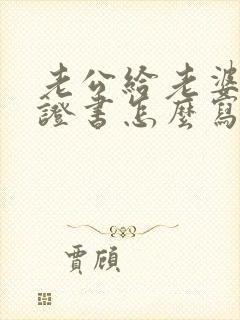 老公給老婆
證書怎麼寫
賈頎